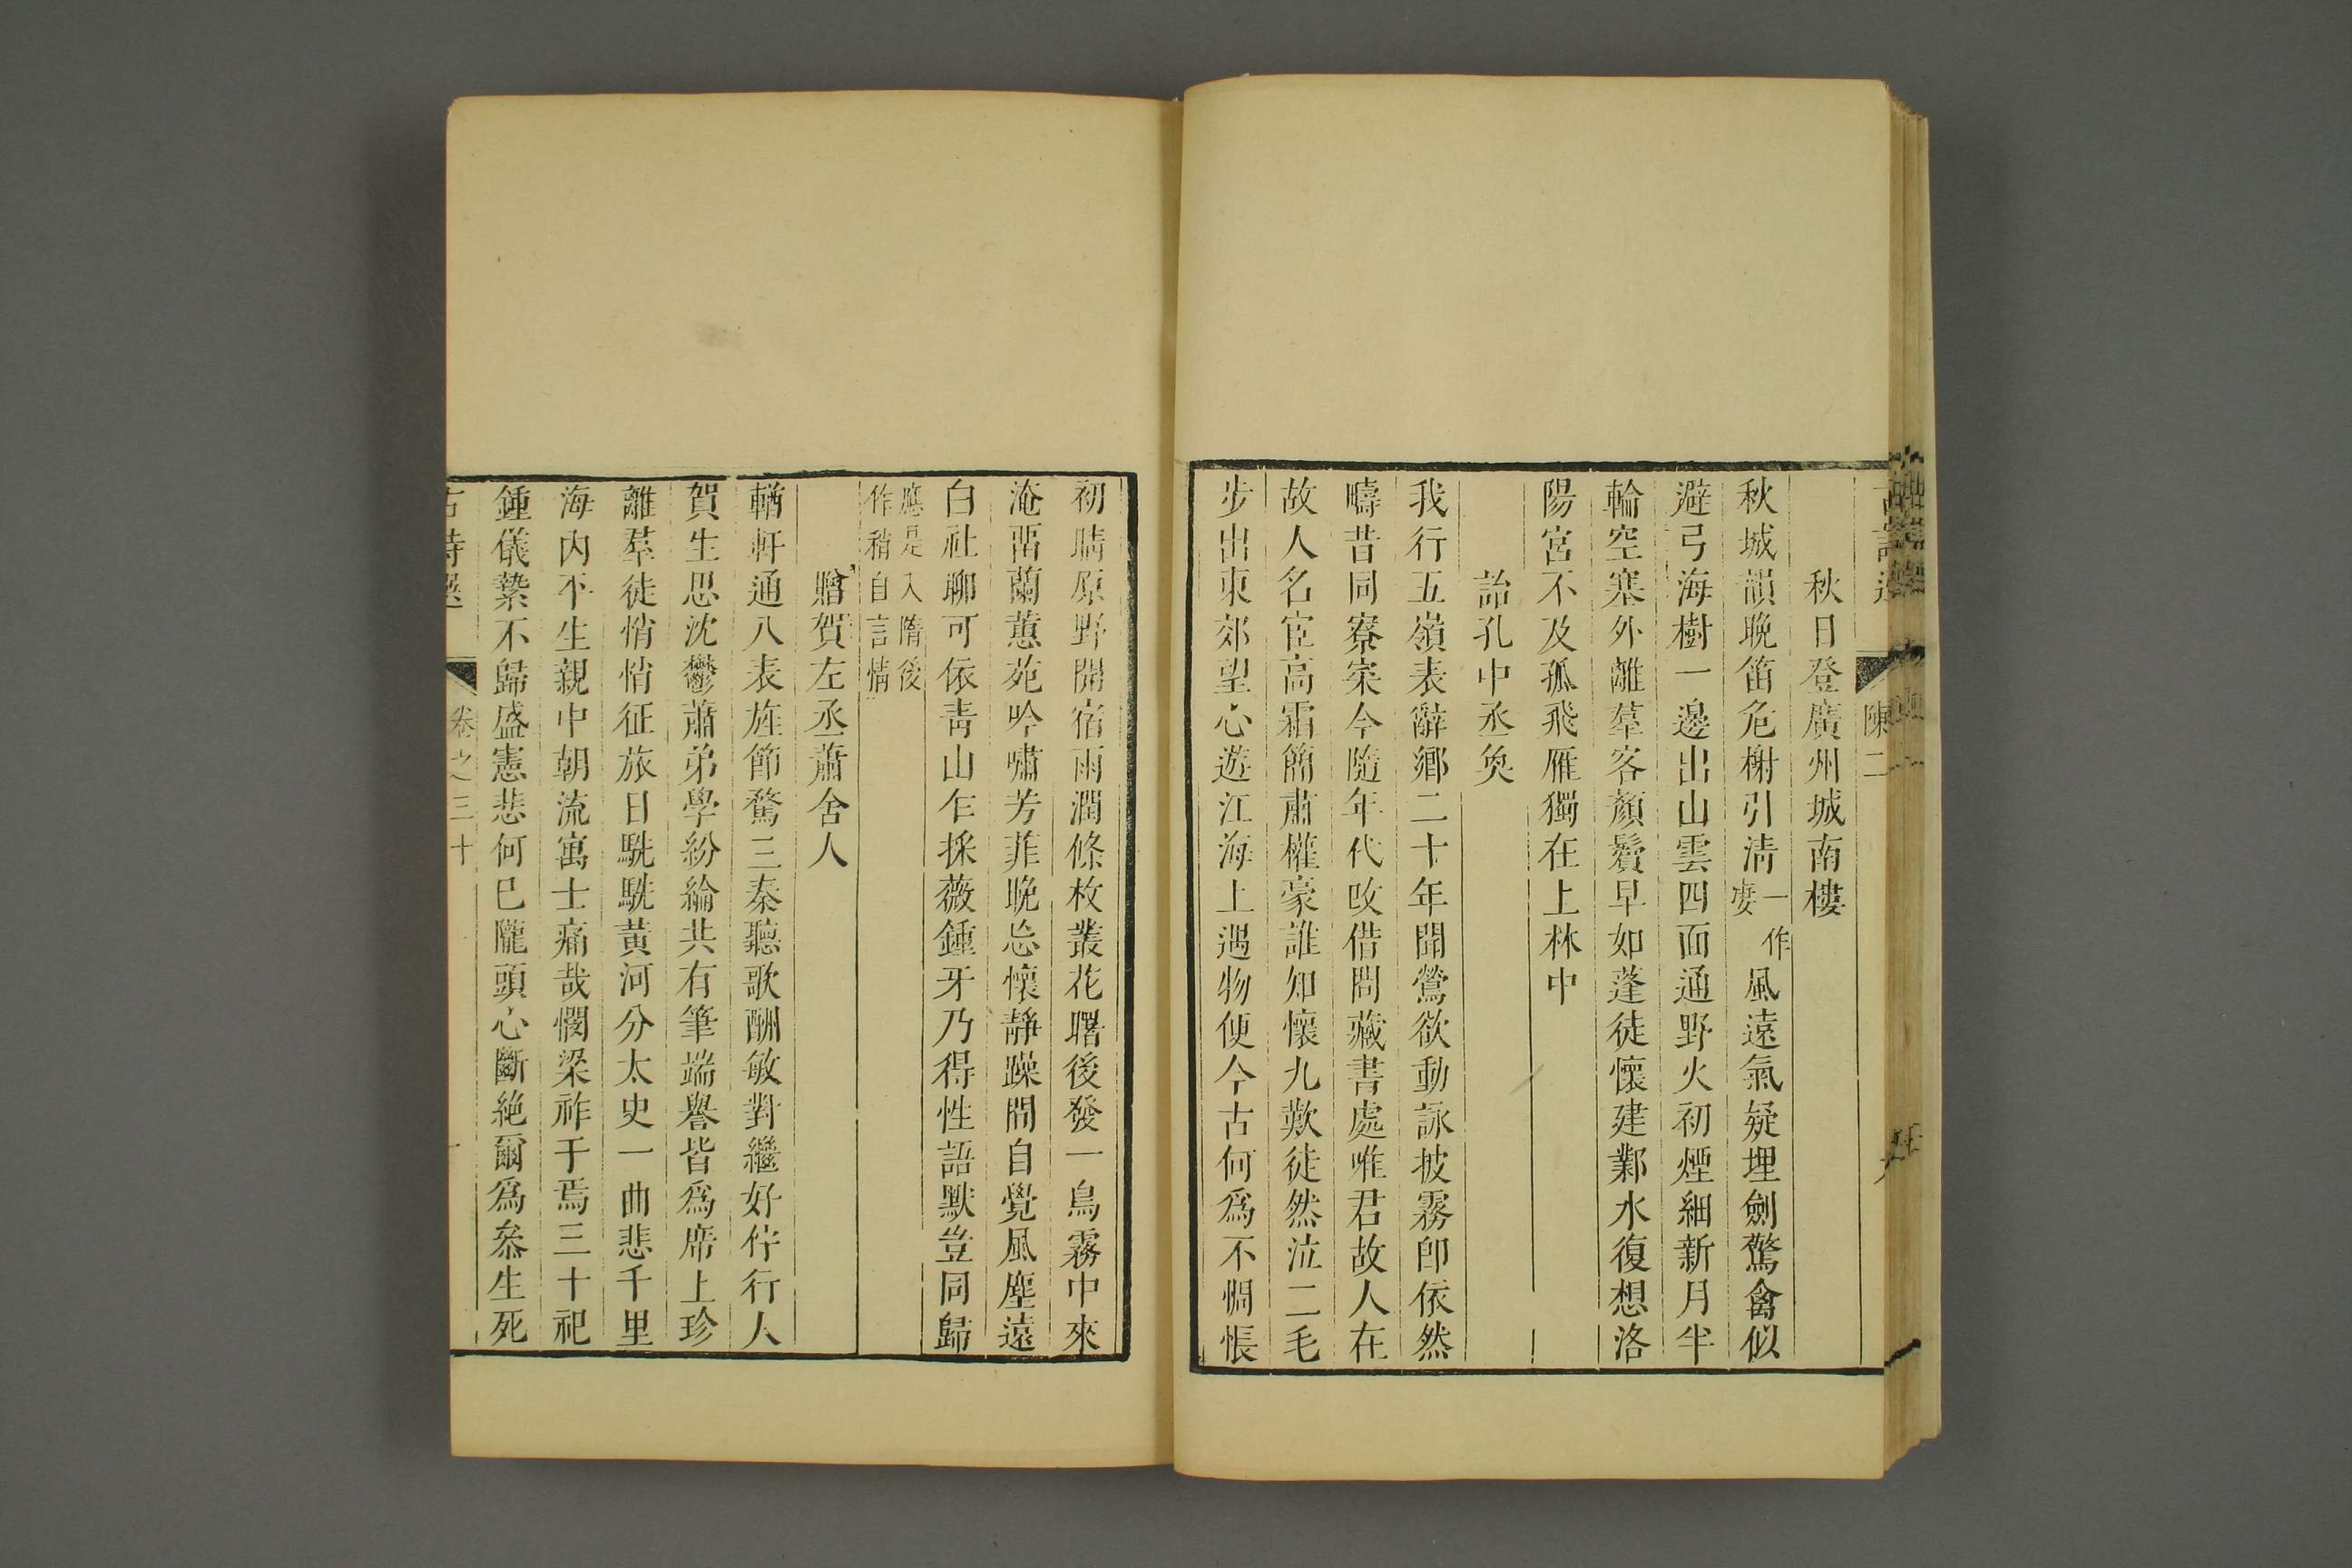 古詩選 陳二
秋日登廣州城南樓
秋城韻晚笛危榭引清一作凄風遠氣疑埋劍驚禽似
避弓海樹一邊出山雲四面通野火初煙細新月半
輪空塞外離羣客顏鬢早如蓬徒懷建鄴水復想洛
陽宮不及孤飛雁獨在上林中
詒孔中丞奐
我行五嶺表辭鄉二十年聞鶯欲動詠披霧即依然
疇昔同寮寀今隨年代改借問藏書處唯君故人在
故人名宦高霜簡肅權豪誰知懷九歎徒然泣二毛
步出東郊望心遊江海上遇物便今古何為不惆悵
初晴原野開宿雨潤條枚叢花曙後發一鳥霧中來
淹留蘭蕙苑吟嘯芳菲晚忘懷靜躁間自覺風塵遠
白社聊可依青山乍採薇鍾牙乃得性語默豈同歸
應是入隋後
作稍自言情
贈賀左丞蕭舍人
輶軒通八表旌節騖三秦聽歌酬敏對繼好佇行人
賀生思沈鬱蕭弟學紛綸共有筆端譽皆為席上珍
離羣徒悄悄征旅日駪駪黃河分太史一曲悲千里
海內平生親中朝流寓士痛哉憫梁祚于焉三十祀
鍾儀縶不歸盛憲悲何已隴頭心斷絕爾為參生死
古詩選 卷之三十